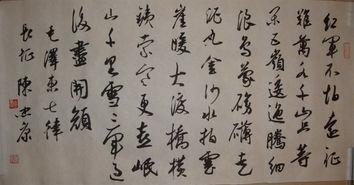 紅軍不怕遠征
難萬水千山只等
閒五嶺逶迤騰細
浪烏蒙磅礴走
泥丸金沙水拍雲
崖暖大渡橋橫
鐵索寒更喜岷
山千里雪三軍過
後盡開顏
毛澤東七律
長征 陳忠康